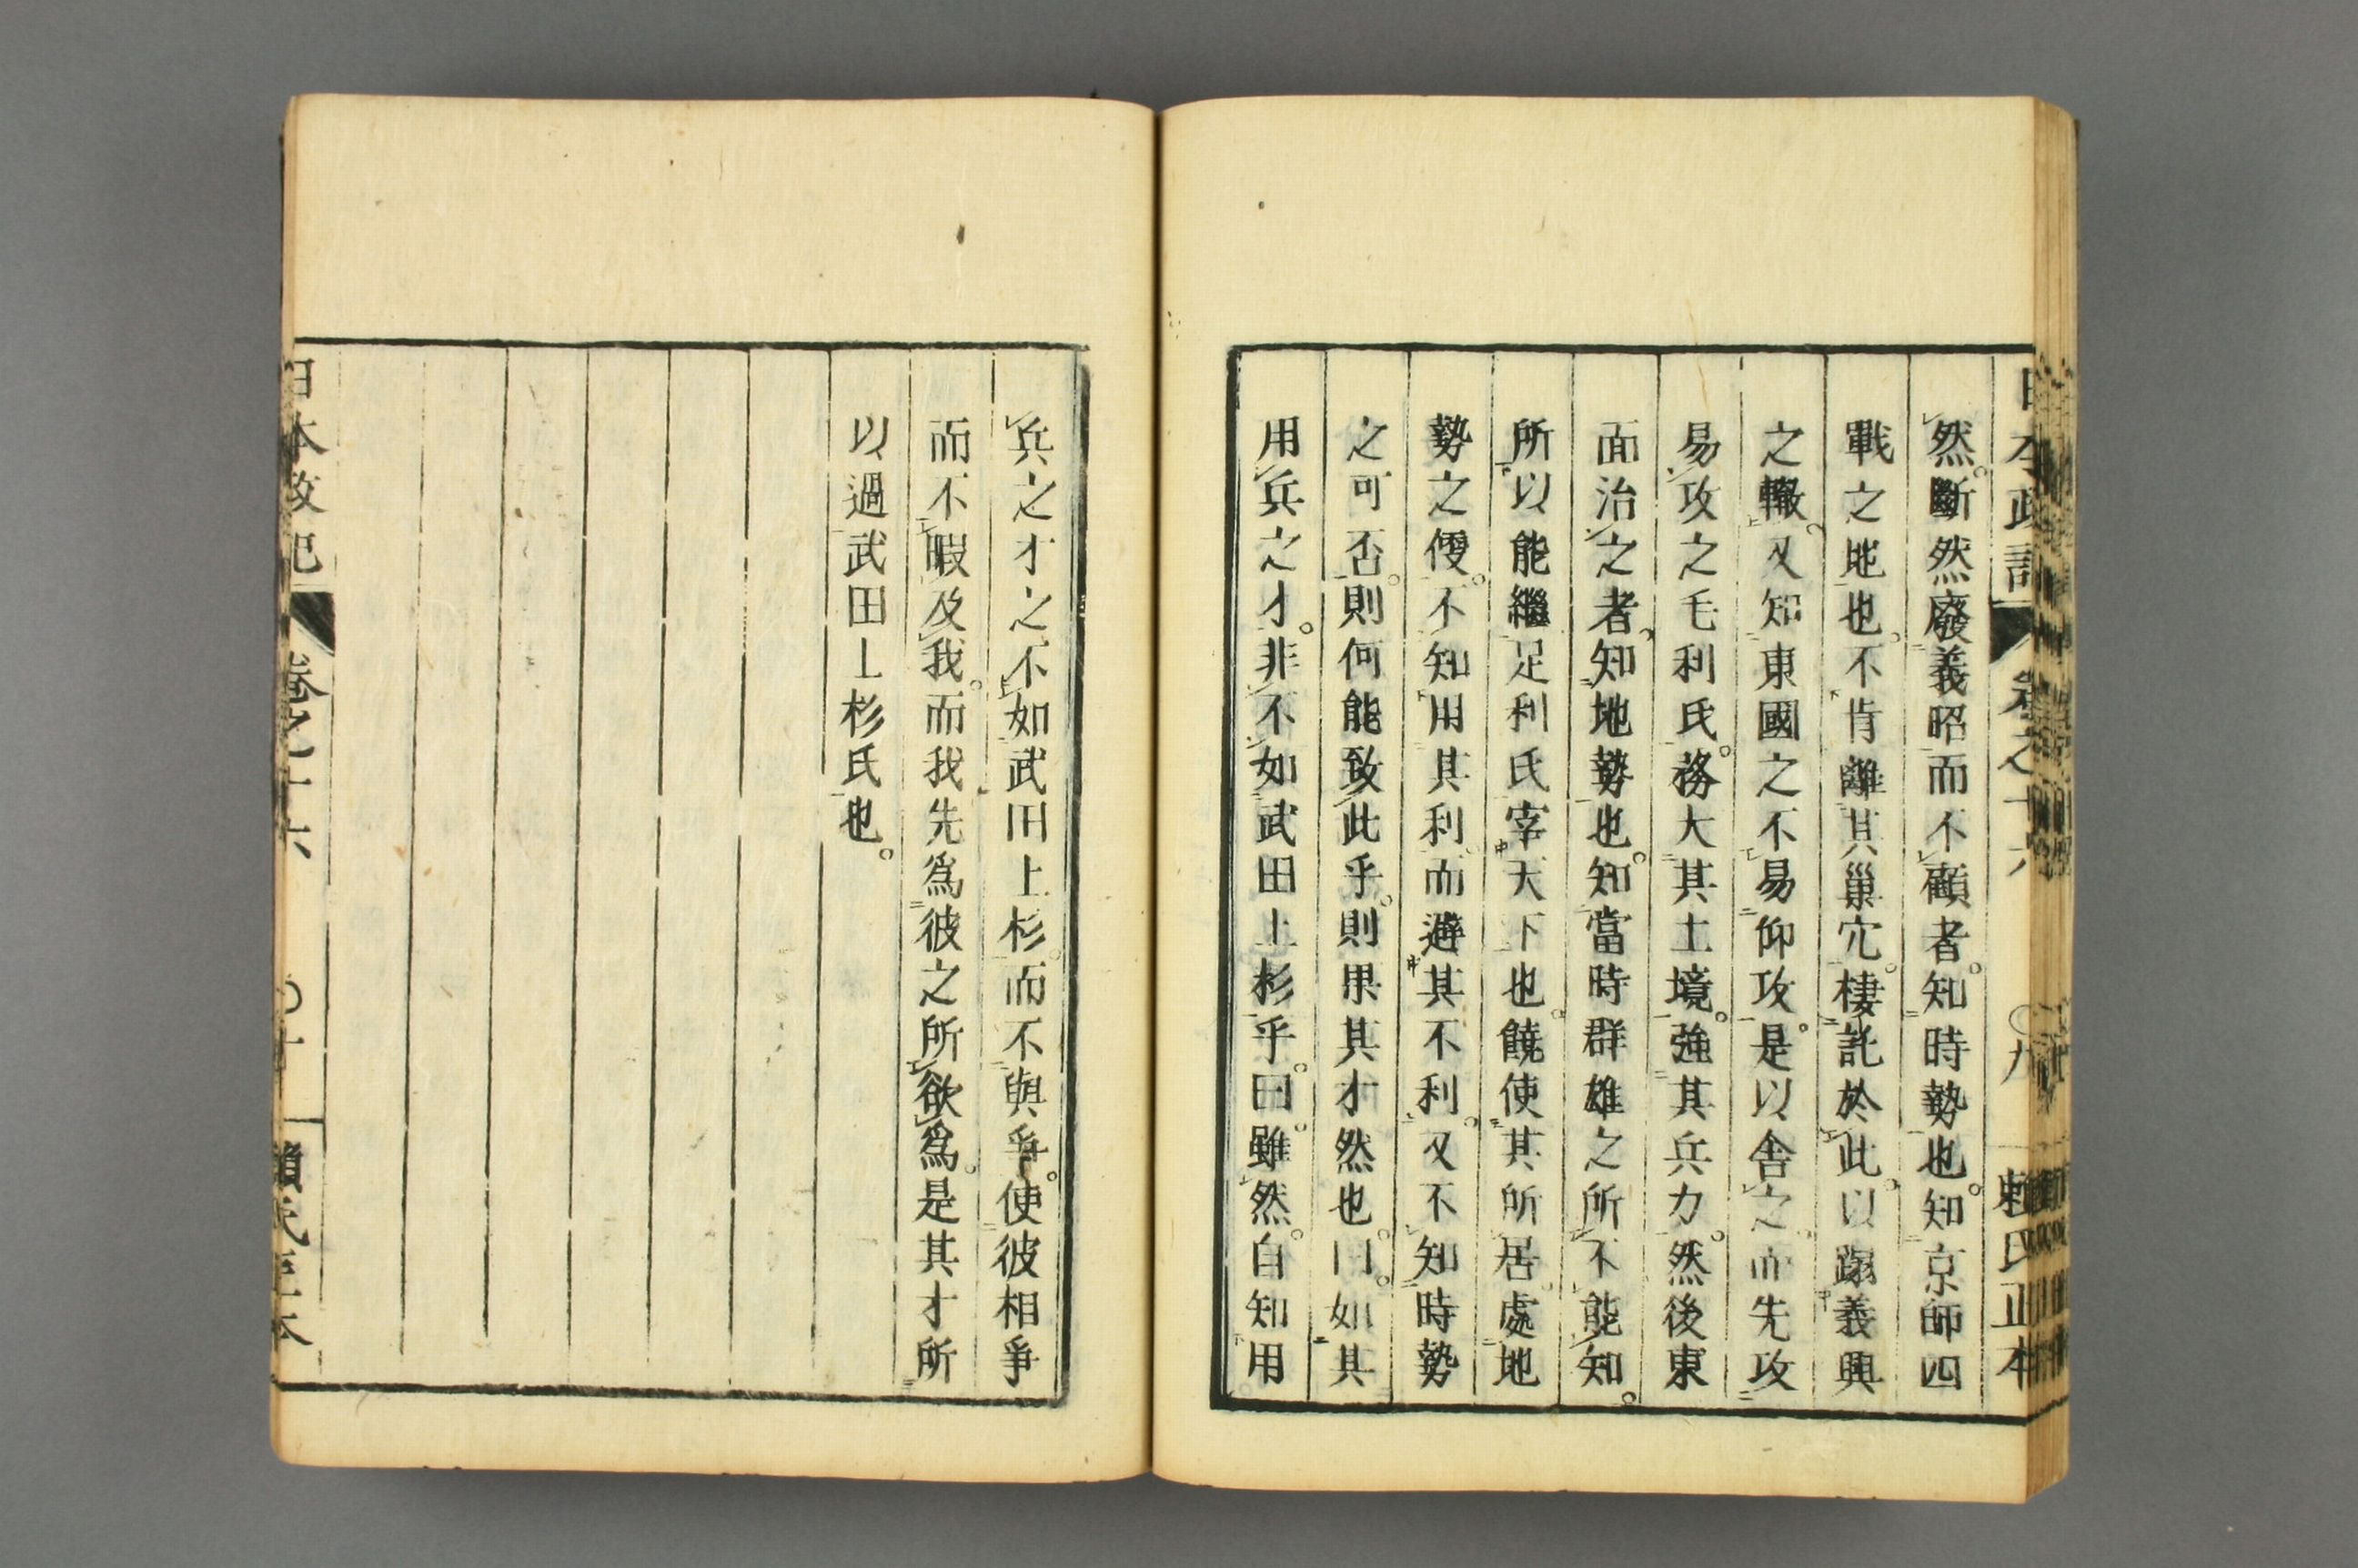 日本政記 卷之十六 〇九 賴氏正本
然。斷然廢義昭而不顧者。知時勢也。知京師四
戰之地也。不肯離其巢穴。棲託於此。以蹈義興
之轍。又知東國之不易仰攻。是以舍之。而先攻
易攻之毛利氏。務大其土境。強其兵力。然後東
面治之者。知地勢也。知當時群雄之所不能知。
所以能繼足利氏宰天下也。饒使其所居處地
勢之便。不知用其利。而避其不利。又不知時勢
之可否。則何能致此乎。則果其才然也。曰。如其
用兵之才。非不如武田上杉乎。曰。雖然。自知用
兵之才之不如武田上杉。而不與爭。使彼相爭
而不暇及我。而我先爲彼之所欲爲。是其才所
以過武田上杉氏也。
日本政記 卷之十六 〇十 賴氏正本